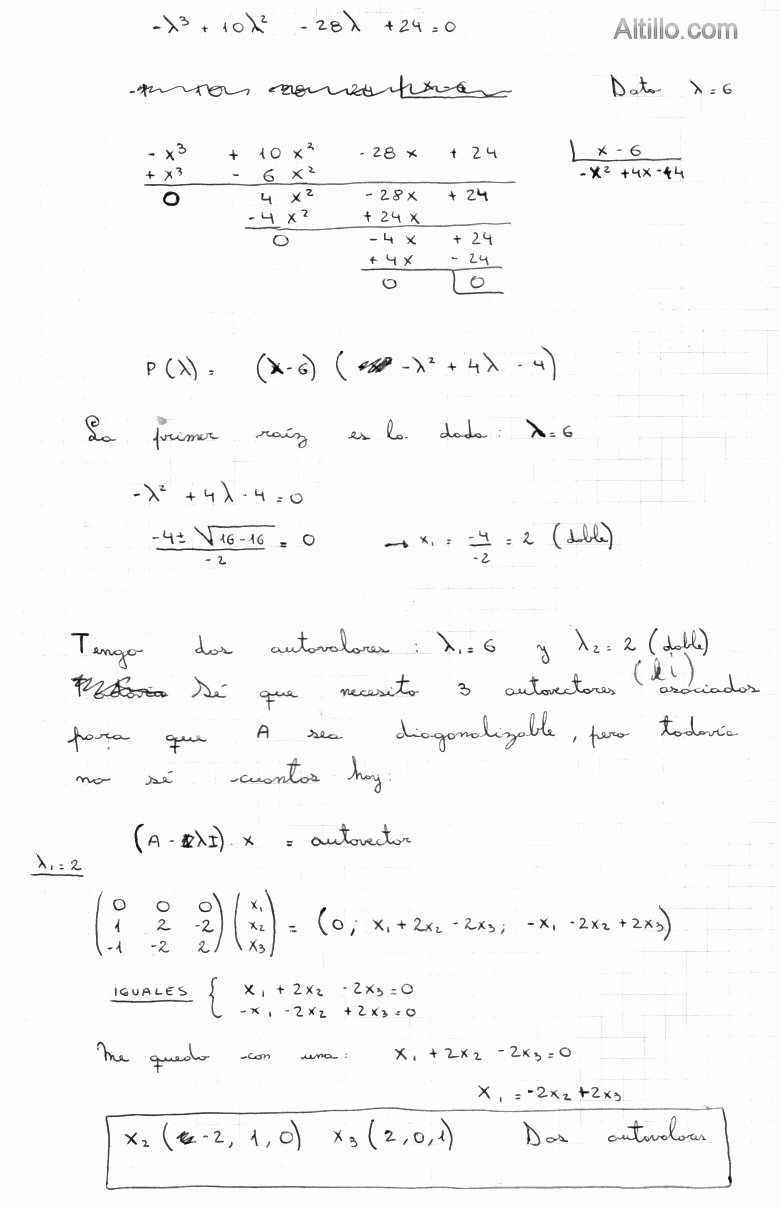 -λ³ + 10λ² - 28λ + 24 = 0
Altillo.com
Dato λ = 6
- x³ + 10 x² - 28 x + 24 | x - 6
+ x³ - 6 x² -x² + 4x - 4
0 4 x² - 28x + 24
- 4 x² + 24 x
0 - 4 x + 24
+ 4 x - 24
0 0
P(λ) = (x - 6) ( -λ² + 4λ - 4)
La primer raíz es la dada: λ = 6
-λ² + 4λ - 4 = 0
-4 ± √16 - 16 / -2 = 0 → x₁ = -4 / -2 = 2 (doble)
Tengo dos autovalores : λ₁ = 6 y λ₂ = 2 (doble)
Sé que necesito 3 autovectores (li) asociados
para que A sea diagonalizable, pero todavía
no sé cuantos hay:
(A - λI) . x = autovector
λ₁ = 2
( 0 0 0 ) ( x₁ )
( 1 2 -2 ) ( x₂ ) = (0; x₁ + 2x₂ - 2x₃; -x₁ - 2x₂ + 2x₃)
( -1 -2 2 ) ( x₃ )
IGUALES { x₁ + 2x₂ - 2x₃ = 0
-x₁ - 2x₂ + 2x₃ = 0
Me quedo con una: x₁ + 2x₂ - 2x₃ = 0
x₁ = -2x₂ + 2x₃
x₂ (-2, 1, 0) x₃ (2, 0, 1) Dos autovalores